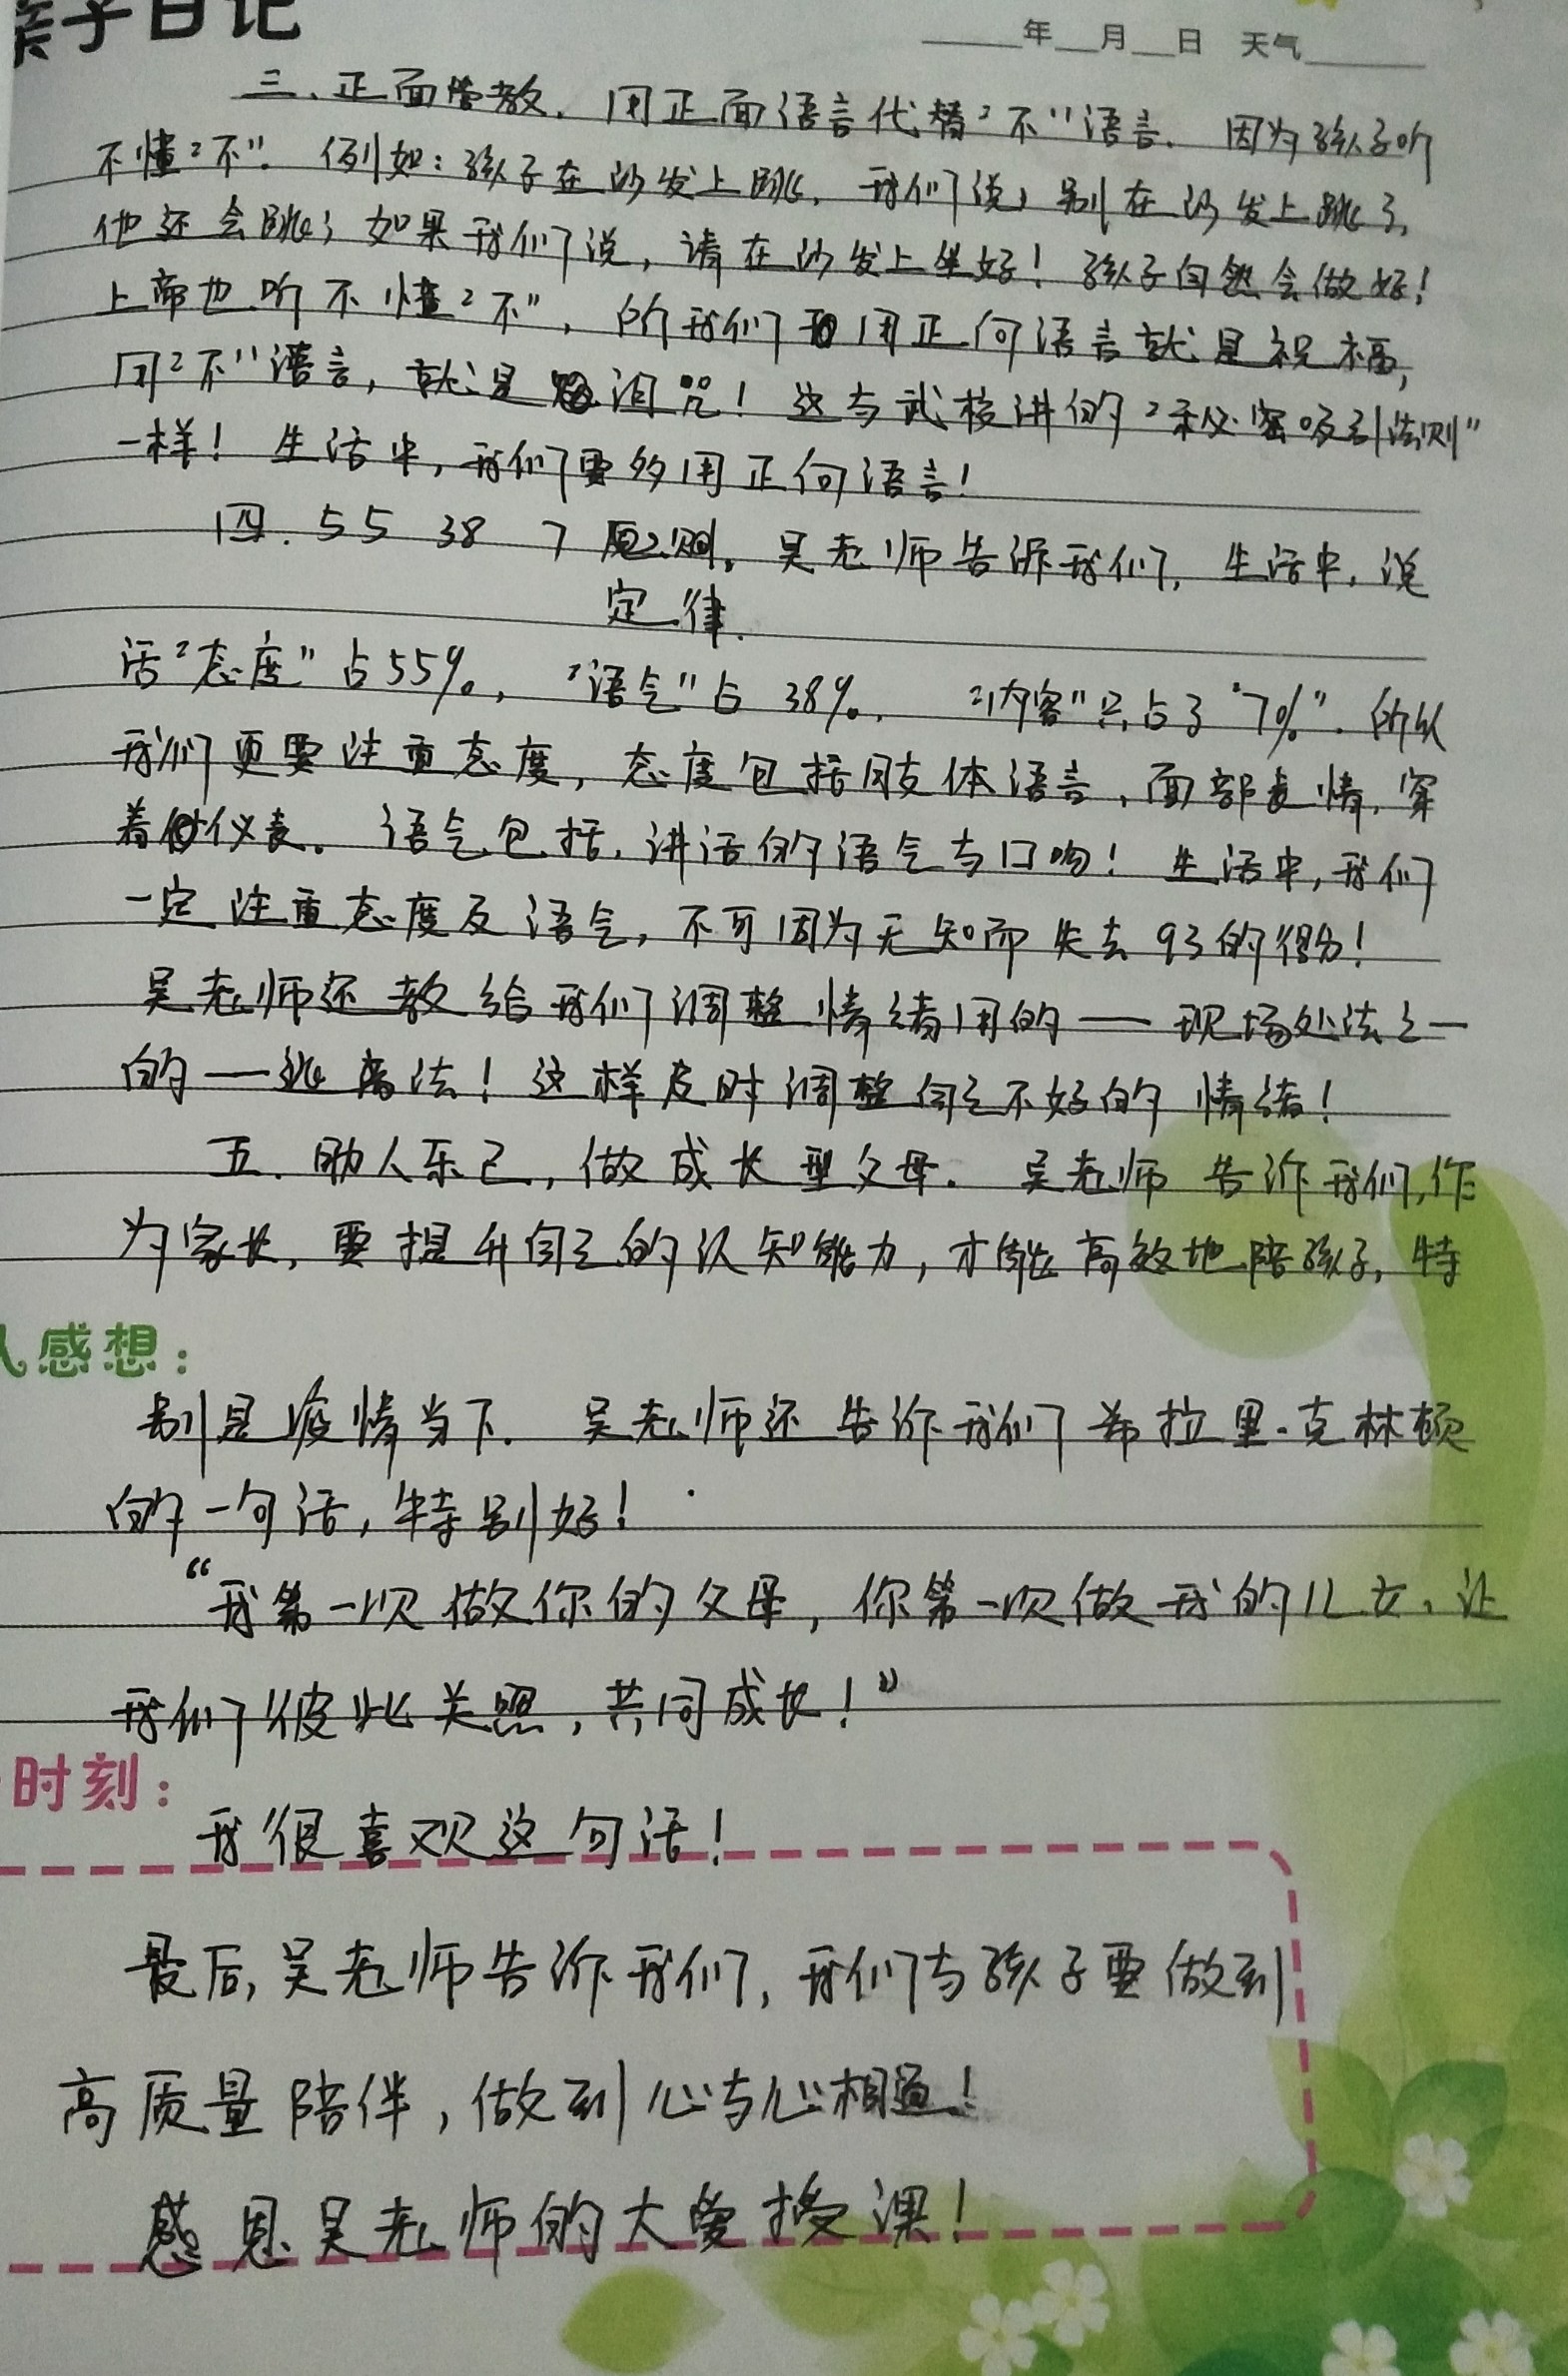 亲子日记
年 月 日 天气
三、正面管教. 用正面语言代替"不"语言. 因为孩子听
不懂"不". 例如:孩子在沙发上跳, 我们说,别在沙发上跳了,
他还会跳;如果我们说,请在沙发上坐好!孩子自然会做好!
上帝也听不懂"不", 所我们用正向语言就是祝福,
同"不"语言, 就是诅咒!这与武校讲的"秘密吸引法则"
一样!生活中,我们要多用正向语言!
四. 55 38 7 原则. 吴老师告诉我们, 生活中, 说
定律.
话"态度"占55%, "语气"占38%, "内容"只占了"7%". 所以
我们更要注重态度, 态度包括肢体语言, 面部表情, 穿
着仪表。语气包括, 讲话的语气与口吻!生活中,我们
一定注重态度及语气, 不可因为无知而失去93的得分!
吴老师还教给我们调整情绪用的——现场处法之一
的——逃离法!这样及时调整自己不好的情绪!
五. 助人乐己, 做成长型父母. 吴老师告诉我们,作
为家长, 要提升自己的认知能力, 才能高效地陪孩子, 特
人感想:
别是疫情当下. 吴老师还告诉我们希拉里·克林顿
的一句话, 特别好!
"我第一次做你的父母, 你第一次做我的儿女, 让
我们彼此关照, 共同成长!"
时刻:
我很喜欢这句话!
最后, 吴老师告诉我们, 我们与孩子要做到
高质量陪伴, 做到心与心相通!
感恩吴老师的大爱授课!